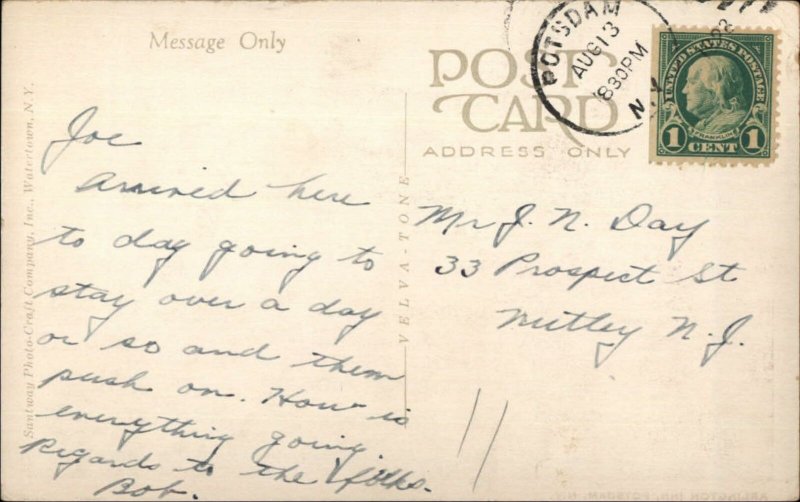 Message Only
POST
CARD
ADDRESS ONLY
POTSDAM
AUG 13
830PM
N.Y.
UNITED STATES POSTAGE
FRANKLIN
1 CENT 1
Santway Photo-Craft Company, Inc., Watertown, N.Y.
VELVA-TONE
Joe
Arrived here
to day going to
stay over a day
or so and them
push on. How is
everything going.
Regards to the folks.
Bob.
Mr J. N. Day
33 Prospect St
Nutley N.J.